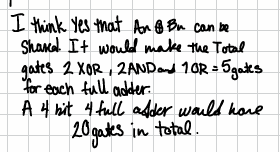 I think Yes that An ⊕ Bn can be
Shared It would make the Total
gates 2 XOR, 2AND and 1OR = 5gates
for each full adder.
A 4 bit 4 full adder would have
20gates in total.